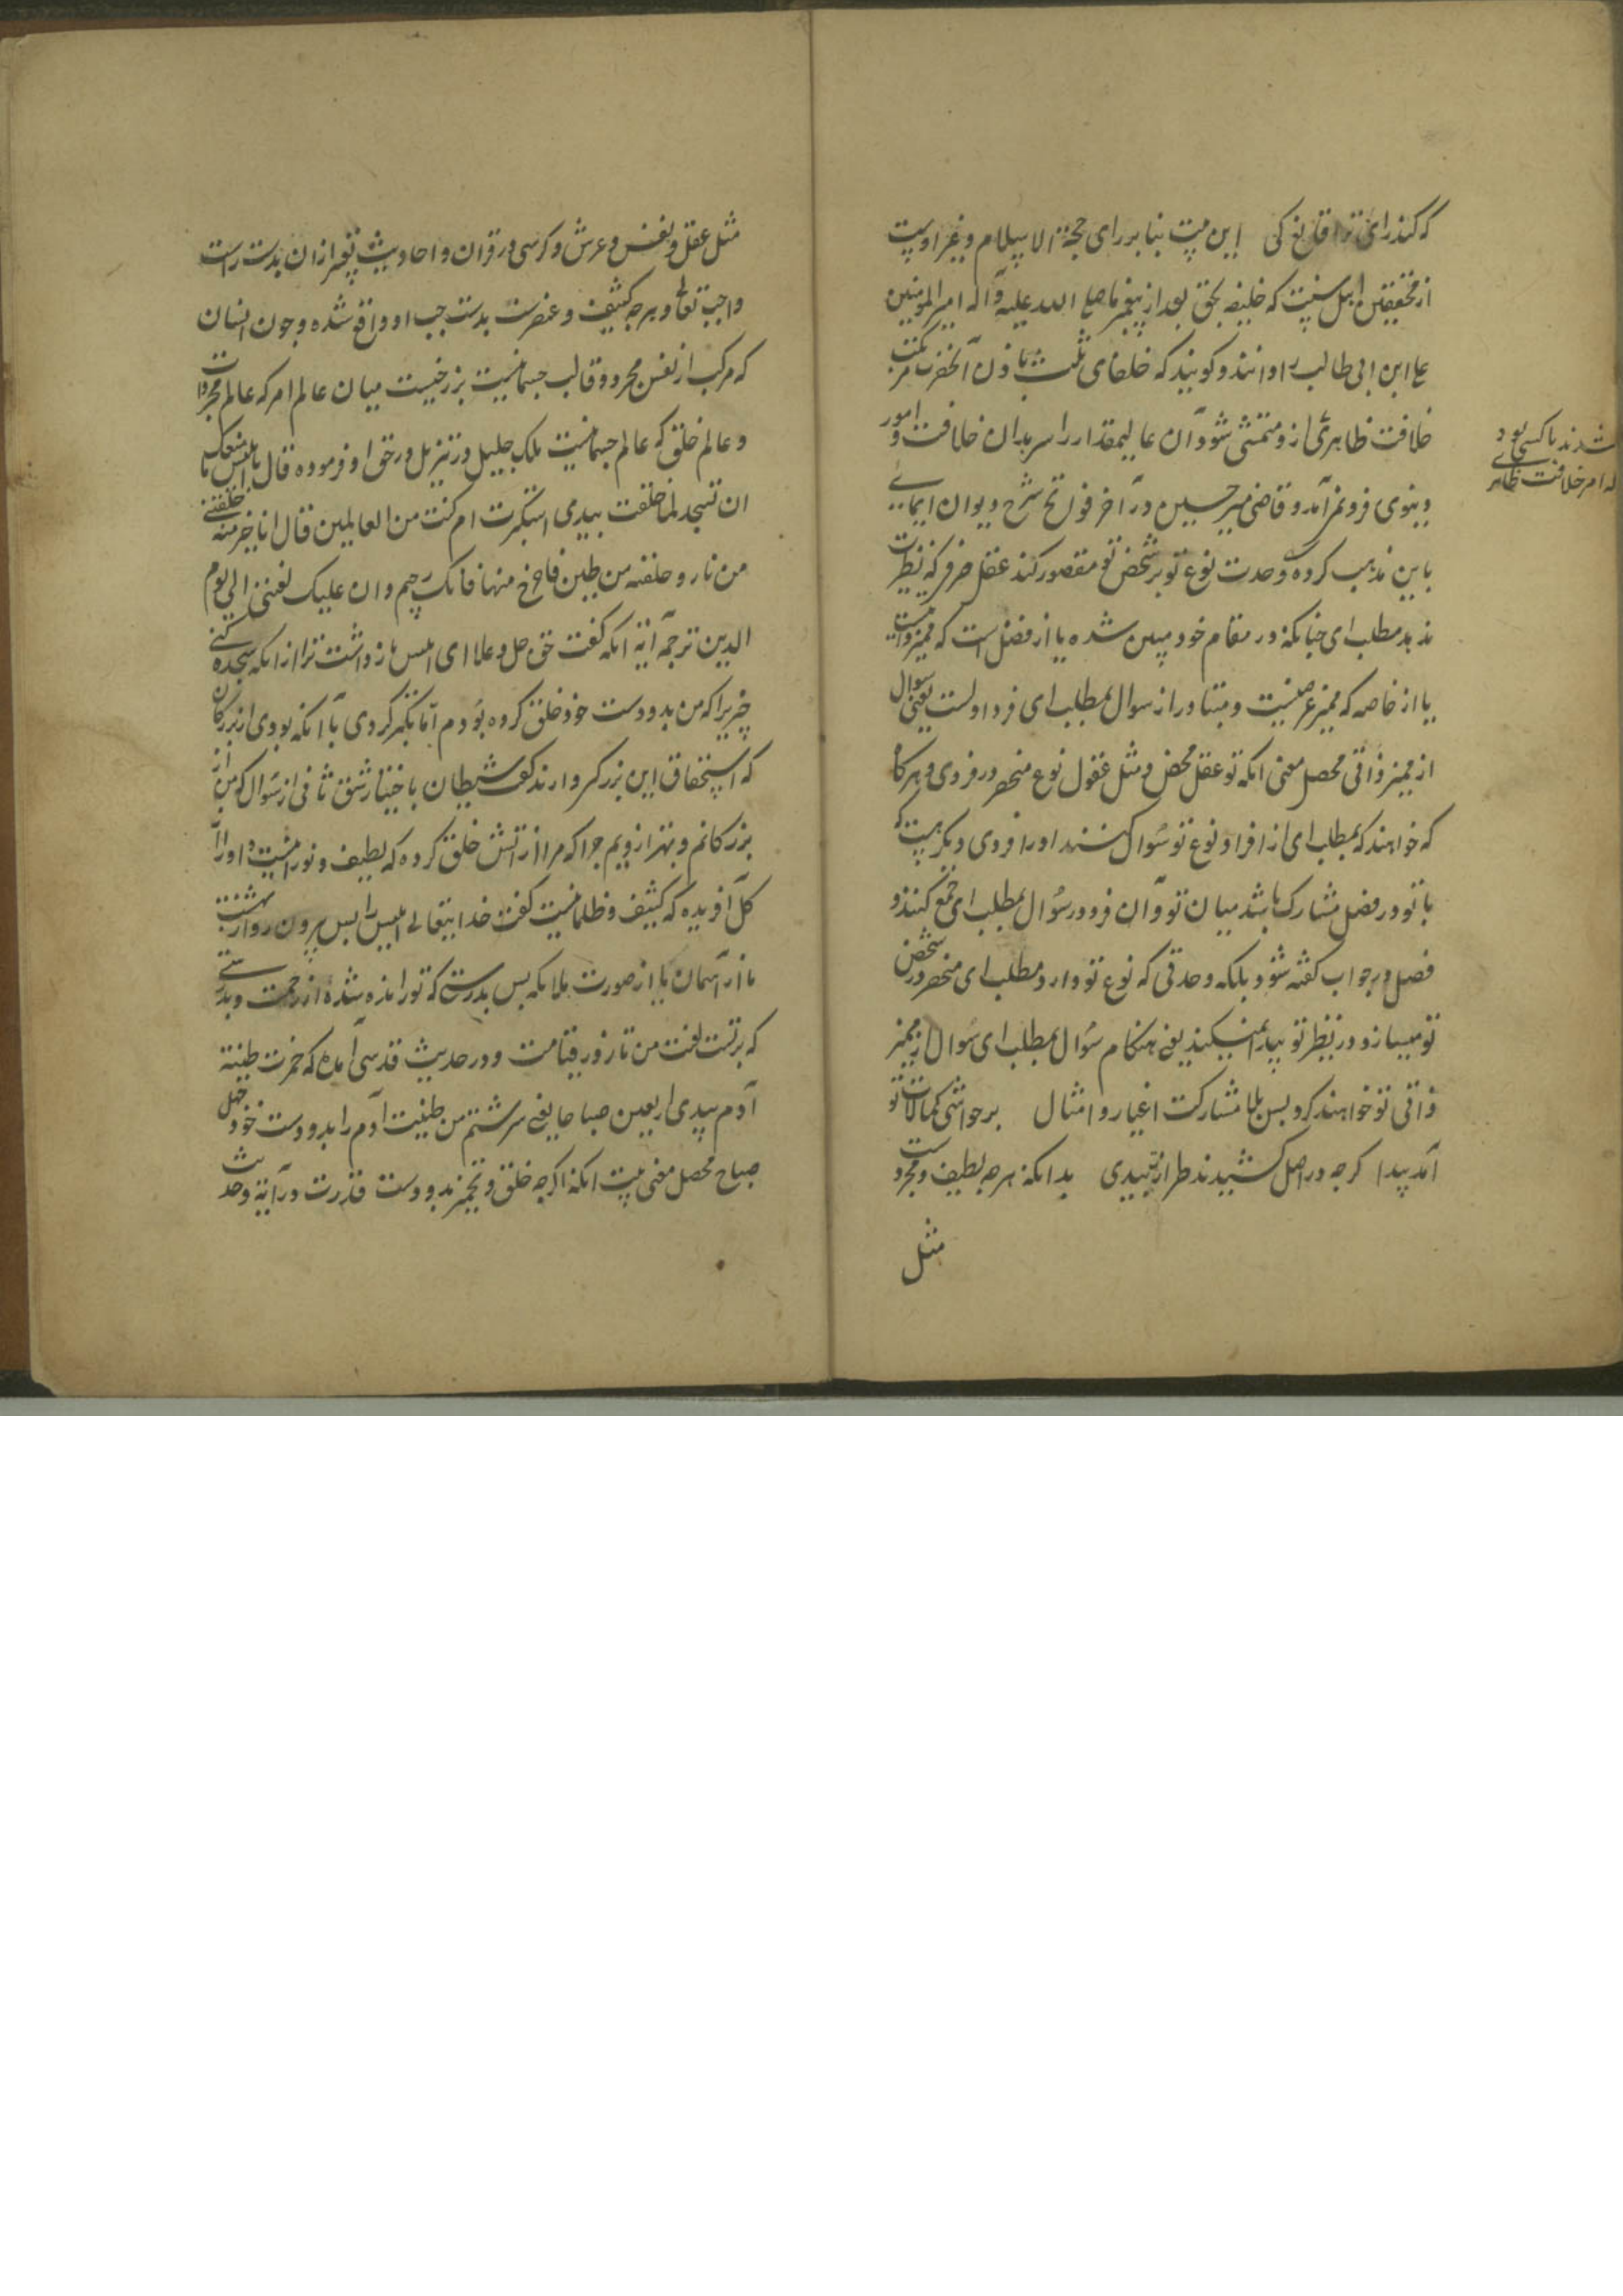 که کند رای ترا قانع کی این بیت بنا بر رای حجة الاسلام و غیر اوست
از محققین اهل سنت که خلیفه بحق بعد از پیغمبر ما صلی الله علیه و آله امیر المومنین
علی ابن ابی طالب را دانند و کویند که خلفای ثلث باذن آنحضرت
خلافت ظاهری ازو متمشی شود و آن عالیمقدار را سر بدان خلافت و امور
دنیوی فرو نمی‌آمد و قاضی میر حسین در آخر فواتح شرح دیوان ایمایی
باین مذهب کرده وحدت نوع تو بر شخص تو مقصور کند عقل صرف که نظرت
ندهد مطلب ای چنانکه در مقام خود مبین شده یا از فصل است که ممیز ذاتیست
یا از خاصه که ممیز عرضیست و متبادر از سوال بمطلب ای فرد اولست یعنی سوال
از ممیز ذاتی محصل معنی انکه تو عقل محض و مثل عقول نوع منحصر در فردی و هرکاه
که خواهند که بمطلب ای از افراد نوع تو سوال کنند او را فردی دیکر نیست که
با تو در فصل مشارک باشد میان تو و آن فرد در سوال بمطلب ای جمع کنند و
فصل در جواب کفته شود بلکه وحدتی که نوع تو دارد مطلب ای منحصر در شخص
تو میسازد و در نظر تو پیدا نمیکند یعنی هنکام سوال بمطلب ای سوال از ممیز
ذاتی تو خواهند کرد بس بلا مشارکت اغیار و امثال بر حواشی کمالات تو
آمد پیدا کرچه در اصل کشیدند طراز بیدی بدانکه هر چه لطیف و مجردست
مثل
شدند تا کسی بود
که امر خلافت ظاهری
مثل عقل و نفس و عرش و کرسی در قران و احادیث تعبیر ازان بدست راست
واجب تعالی و هر چه کثیف و عنصریست بدست چپ او واقع شده و چون انسان
که مرکب از نفس مجرد و قالب جسمانیست برزخیست میان عالم امر که عالم مجردات
و عالم خلق که عالم جسمانیست ملک جلیل در تنزیل در حق او فرموده قال یا ابلیس ما منعک
ان تسجد لما خلقت بیدی استکبرت ام کنت من العالین قال انا خیر منه خلقتنی
من نار و خلقته من طین فاخرج منها فانک رجیم و ان علیک لعنتی الی یوم
الدین ترجمه آیه انکه کفت حق جل و علا ای ابلیس چه بازداشت ترا از انکه سجده کنی
چیزیرا که من بدو دست خود خلق کرده بودم آیا تکبر کردی یا آنکه بودی از بزرکان
که استحقاق این بزرکی دارند کفت شیطان باختیار شق ثانی از سوال که من از
بزرکانم و بهتر ازویم چرا که مرا از اتش خلق کرده که لطیف و نورانیست و او را از
کل آفریده که کثیف و ظلمانیست کفت خدایتعالی ابلیس را پس بیرون رو از بهشت
یا از آسمان یا از صورت ملائکه پس بدرستی که تو رانده شده از رحمت و بدرستی
که برتست لعنت من تا روز قیامت و در حدیث قدسی آمده که خمرت طینة
آدم بیدی اربعین صباحا یعنی سرشتم من طینت آدم را بدو دست خود چهل
صباح محصل معنی بیت انکه اکرچه خلق و تخمیر بدو دست قدرت در آیه و حدیث